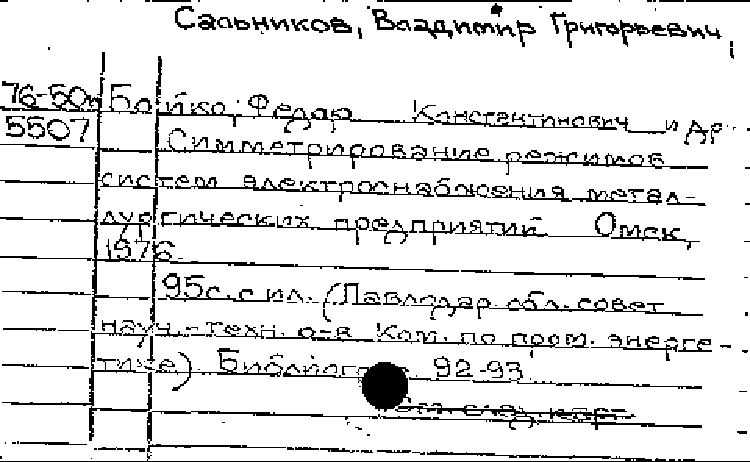 Сальников, Владимир Григорьевич,
76-50
5507
Бойко, Федор Константинович и др.
Симметрирование режимов
систем электроснабжения метал-
лургических предприятий Омск,
1976
95с. с ил. (Павлодар. обл. совет
науч.-техн. о-в. Ком. по пром. энерге-
тике) Библиогр. 92-93